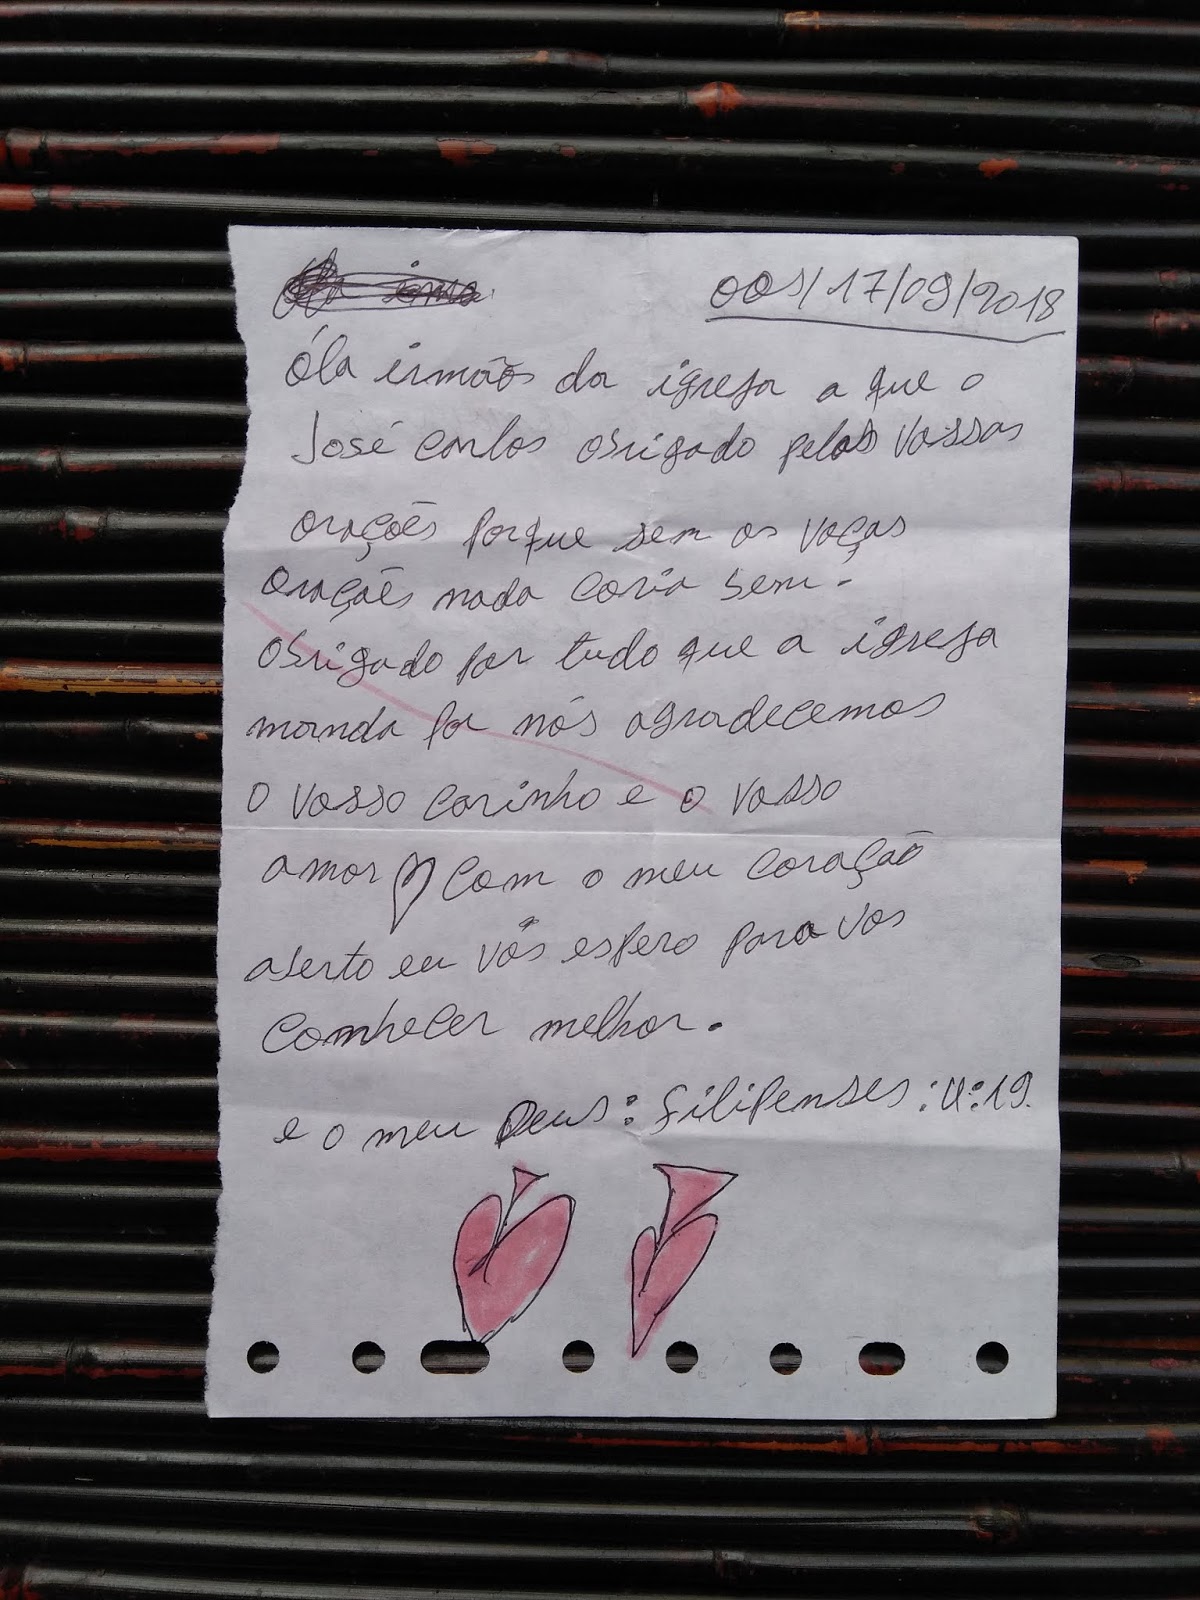 005/17/09/2018
Óla irmãos da igreja a que o
José Carlos obrigado pelas vossas
orações porque sem as vaças
oraçaẽs nada coria bem.
obrigado por tudo que a igreja
manda por nós agradecemos
o vosso carinho e o vosso
amor com o meu coração
aberto eu vós espero para vos
comhecer melhor.
e o meu Deus: filipenses:4:19.